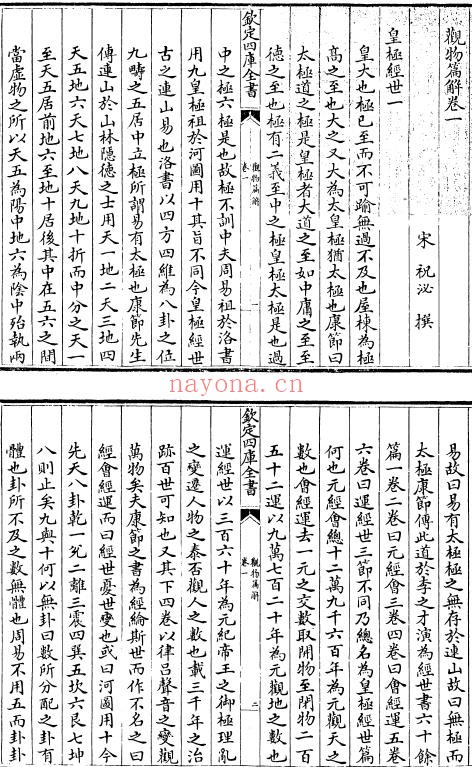 觀物篇解卷一
宋 祝泌 撰
皇極經世一
皇大也極已至而不可踰無過不及也屋棟為極
高之至也大之又大為太皇極猶太極也康節曰
太極道之極是皇極者大道之至如中庸之至至
德之至也極有二義至中之極皇極太極是也過
欽定四庫全書
觀物篇解
卷一
一
中之極六極是也故極不訓中夫周易祖於洛書
用九皇極祖於河圖用十其旨不同今皇極經世
古之連山易也洛書以四方四維為八卦之位
九疇之五居中立極所謂易有太極也康節先生
傳連山於山林隱德之士用天一地二天三地四
天五地六天七地八天九地十折而中分之天一
至天五居前地六至地十居後其中在五六之間
當虛物之所以天五為陽中地六為陰中殆執兩
易故曰易有太極是太極之無存於連山故曰無極而
太極康節傳此道於李之才演為經世書六十餘
篇一卷二卷曰元經會三卷四卷曰會經運五卷
六卷曰運經世三節不同乃總名為皇極經世篇
何也元經會總十二萬九千六百年為元觀天之
數也會經運去一元之交數取開物至閉物二百
五十二運以九萬七百二十年為元觀地之數也
欽定四庫全書
觀物篇解
卷一
二
運經世以三百六十年為元紀帝王之御極理亂
之變遷人物之泰否觀人之數也載三千年之治
跡百世可知也又其下四卷以律呂聲音之變觀
萬物矣夫康節之書為經綸斯世而作不名之曰
經會經運而曰經世憂世變也或曰河圖用十今
先天八卦乾一兌二離三震四巽五坎六艮七坤
八則止矣九與十何以無卦曰數所分配之卦有
體也卦所不及之數無體也周易不用五而卦卦
nayona.cn